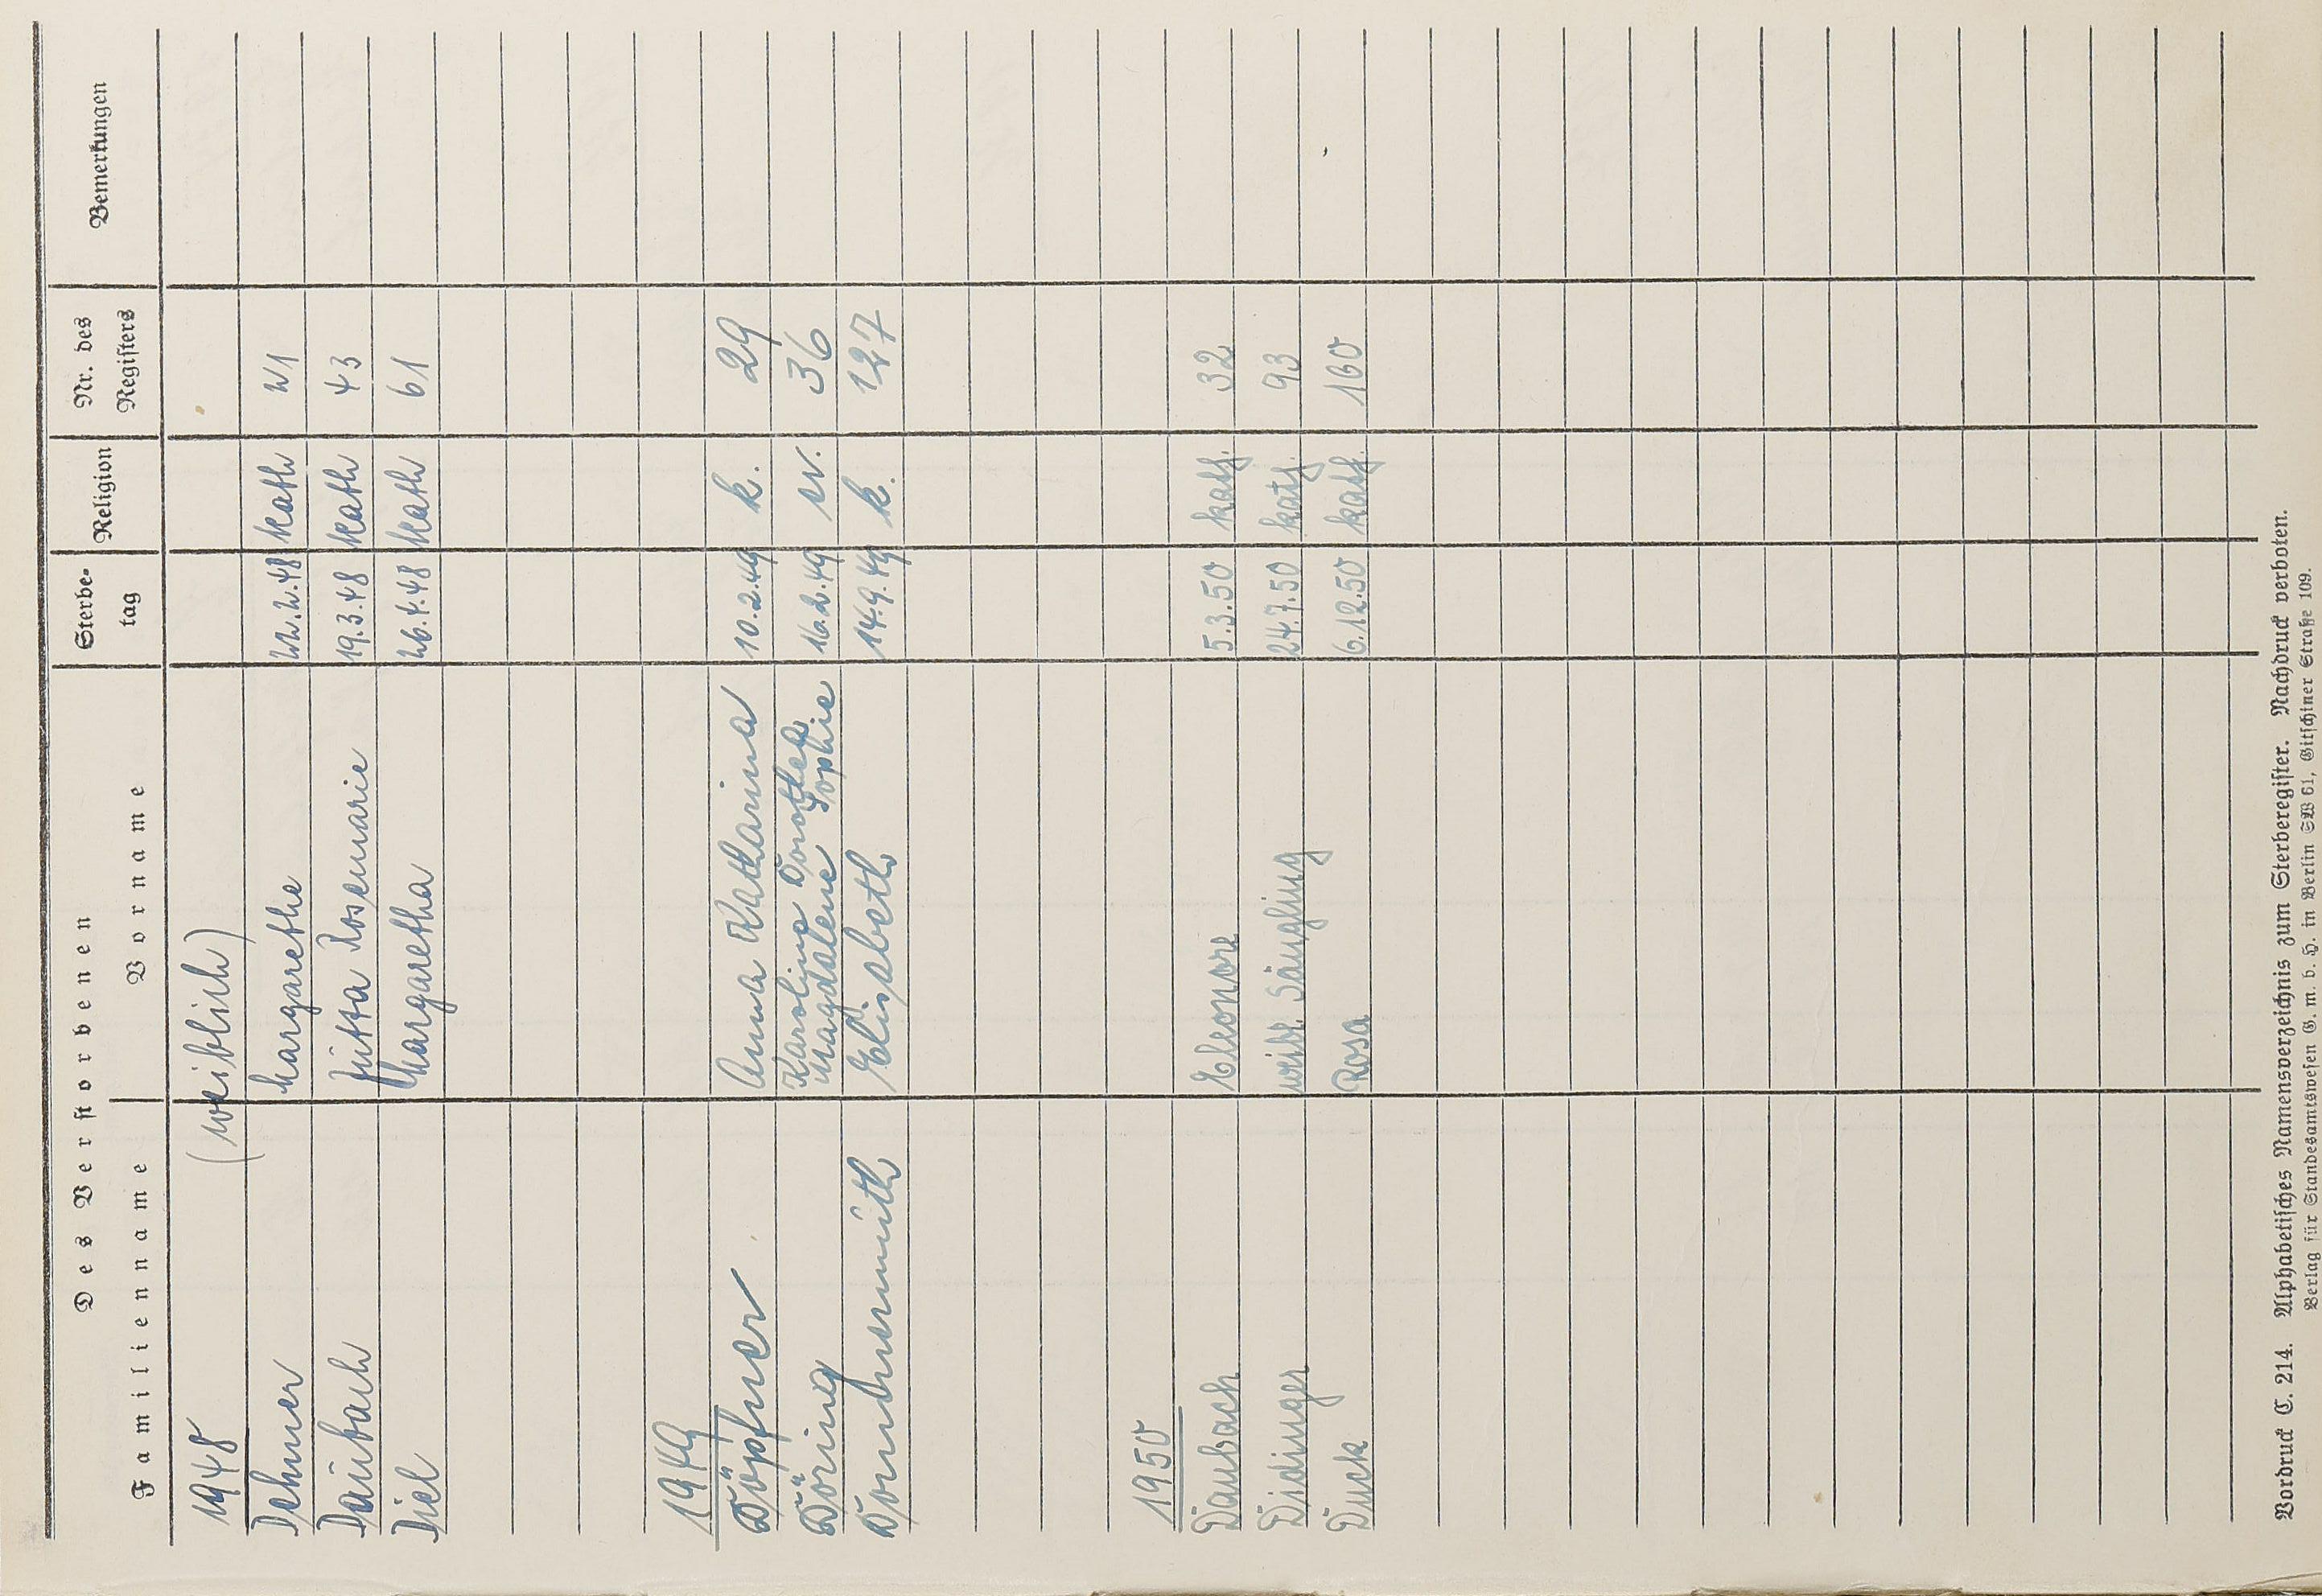 Des Verstorbenen
Familienname Vorname Sterbe- tag Religion Nr. des Registers Bemerkungen
1948 (weiblich)
Dehmer Margarethe 22.2.48 kath 21
Daubach Jutta Rosemarie 19.3.48 kath 43
Diel Margaretha 26.4.48 kath 61
1949
Döpfner Anna Katharina 10.2.49 k. 29
Döring Karoline Dorothea Magdalene Sophie 16.2.49 ev. 36
Dornhermuth Elisabeth 14.9.49 k. 127
1950
Daubach Eleonore 5.3.50 kath. 32
Didinger weibl. Säugling 24.7.50 kath. 93
Duck Rosa 6.12.50 kath. 160
Vordruck C. 214. Alphabetisches Namensverzeichnis zum Sterberegister. Nachdruck verboten.
Verlag für Standesamtswesen G. m. b. H. in Berlin SW 61, Gitschiner Straße 109.